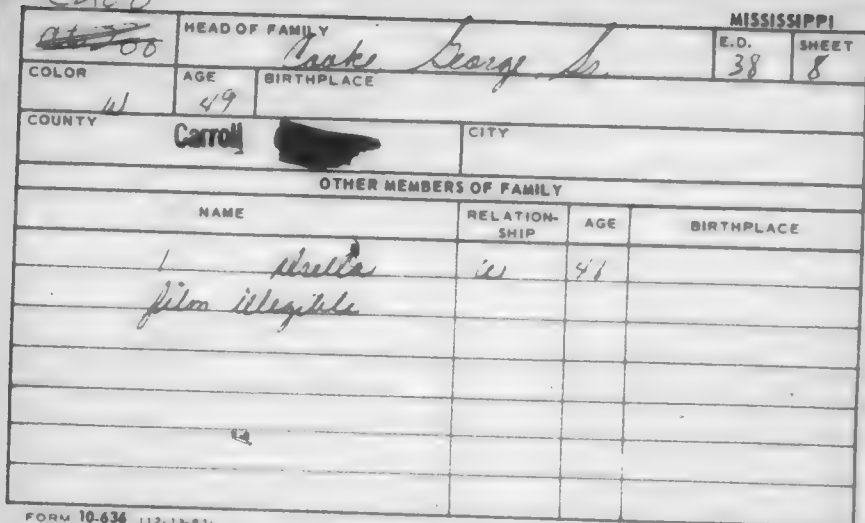 MISSISSIPPI
HEAD OF FAMILY
Cooke, George, Sr.
E.D.
38
SHEET
8
COLOR
W
AGE
49
BIRTHPLACE
COUNTY
Carroll
CITY
OTHER MEMBERS OF FAMILY
NAME
RELATION-
SHIP
AGE
BIRTHPLACE
W
film illegible
FORM 10-636